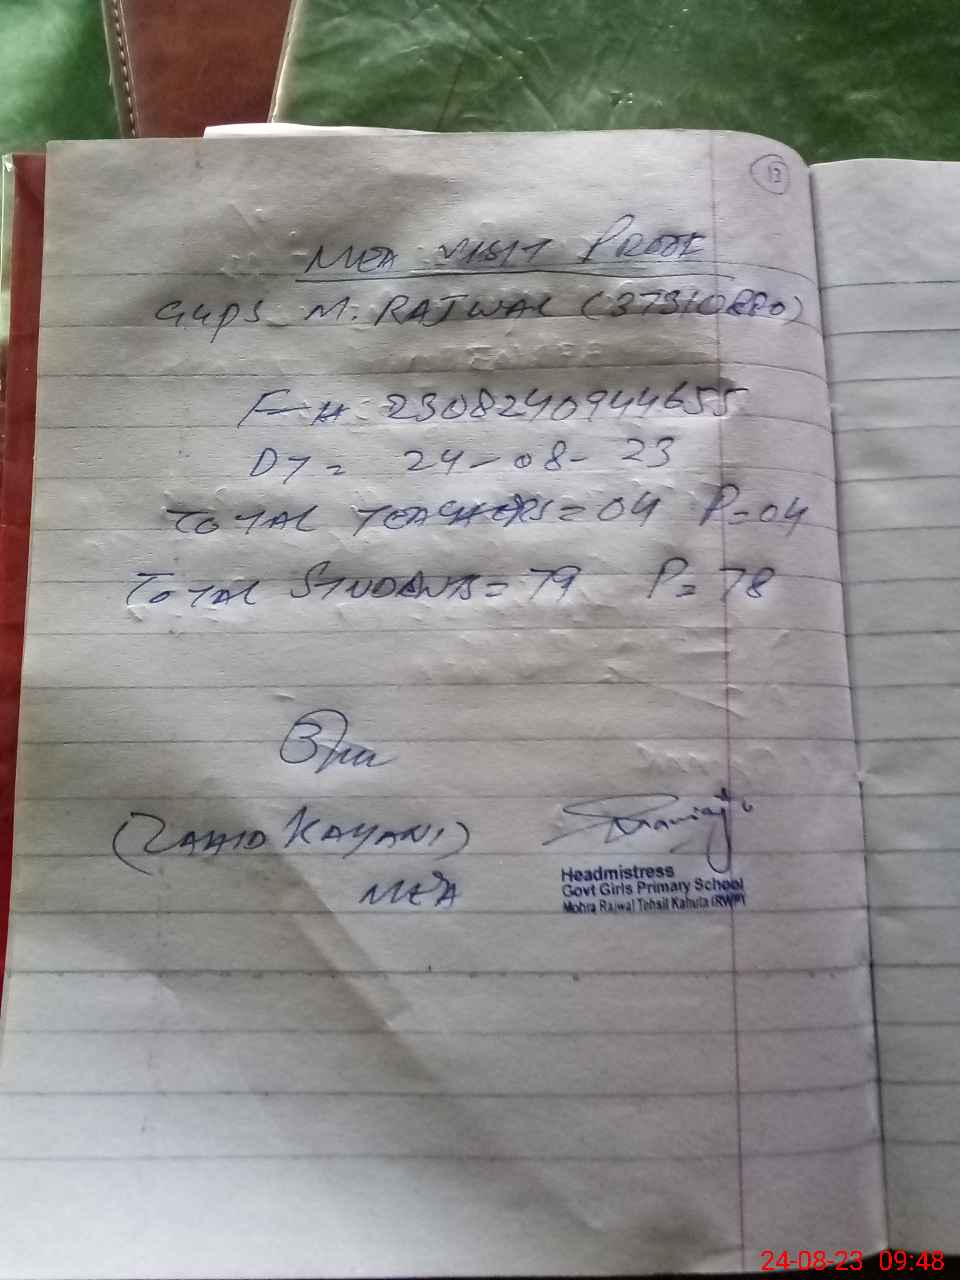 13
MEA VISIT PROOF
GGPS M. RAJWAL
F-# 2308240944655
DT = 24-08-23
TOTAL TEACHERS = 04 P=04
TOTAL STUDANTS = 79 P= 78
(ZAHID KAYANI)
MEA
Headmistress
Govt Girls Primary School
Mohra Rajwal Tehsil Kahuta (RWP)
24-08-23 09:48